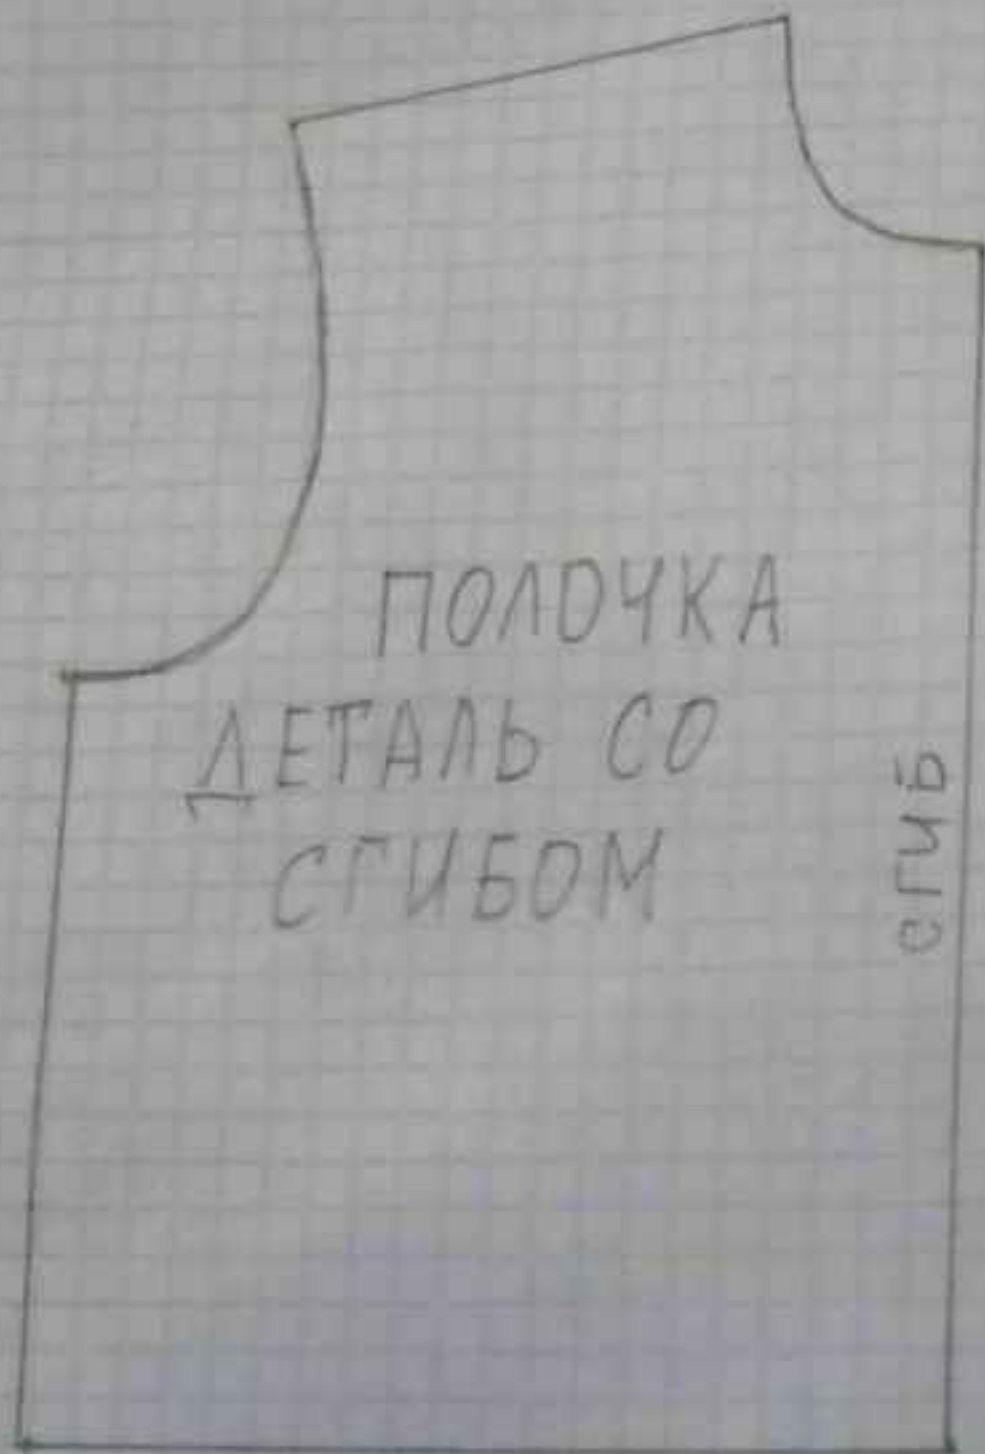 ПОЛОЧКА
ДЕТАЛЬ СО
СГИБОМ
СГИБ